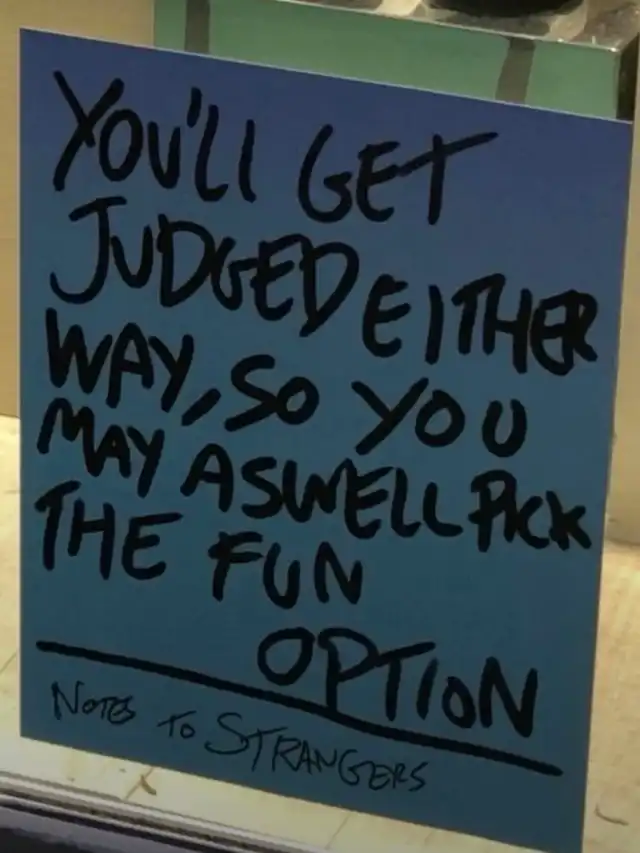 YOU'LL GET
JUDGED EITHER
WAY, SO YOU
MAY ASWELL PICK
THE FUN
OPTION
NOTES TO STRANGERS